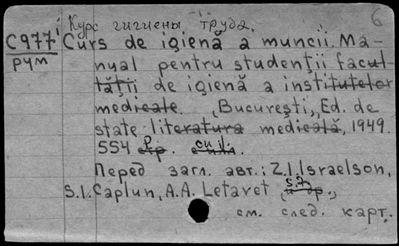 Курс гигиены труда. 6
С977 Curs de igienă a muncii. Ma-
рум nual pentru studenţii facul-
tăţii de igienă a institutelor
medicale. Bucureşti, Ed. de
state literatura medicală, 1949.
554 p. cu il.
Перед загл. авт.: Z.I. Israelson,
S.I. Caplun, A.A. Letavet
см. след. карт.